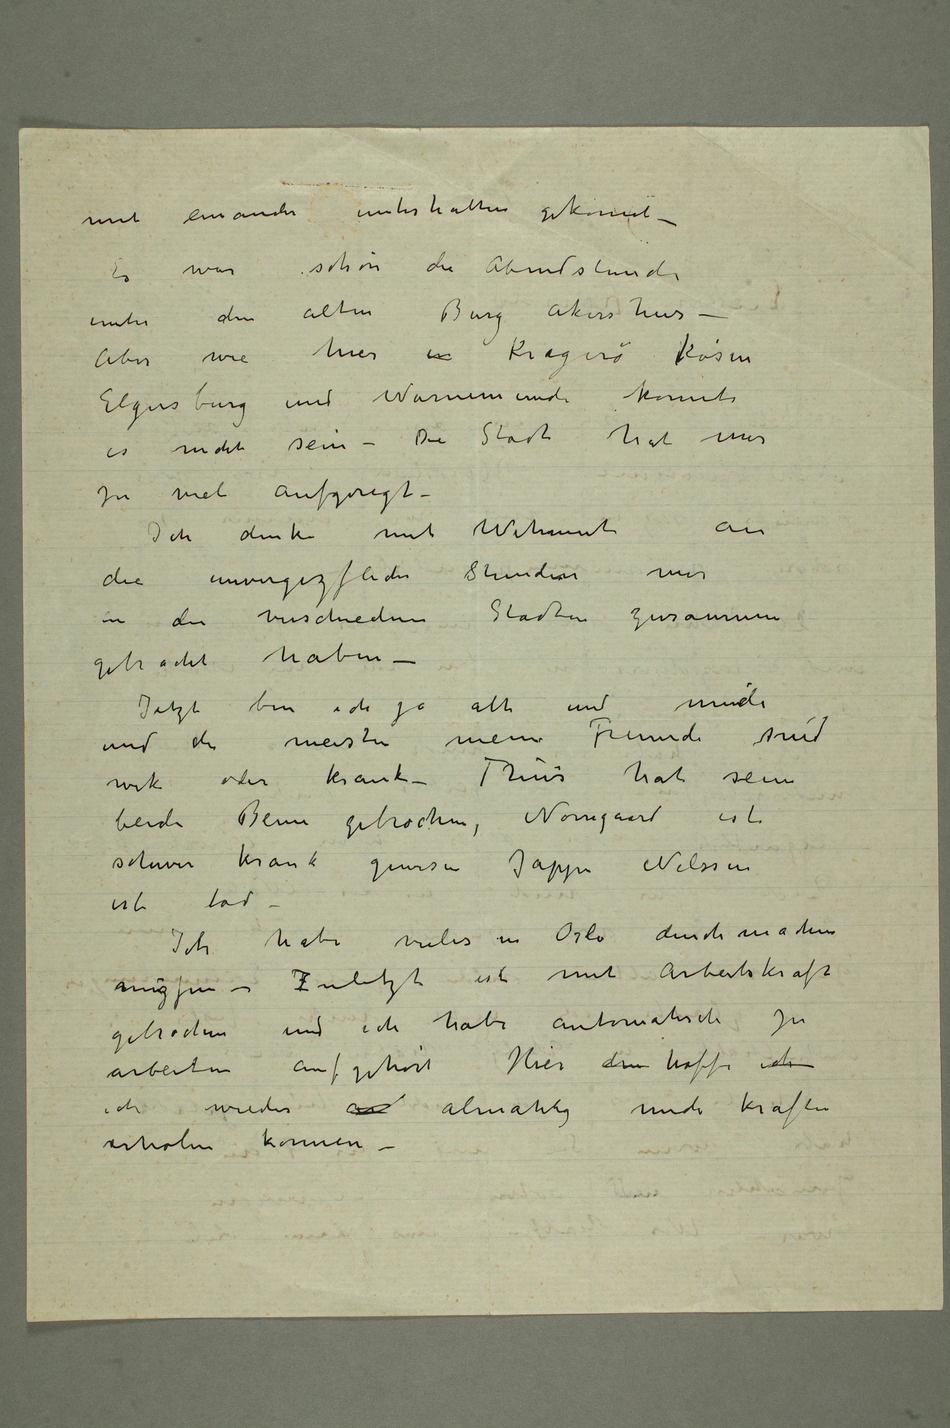 mit einander unterhalten gekonnt –
Es war schön die Abendstunde
unter den alten Burg Akershus –
Aber wie hier in Kragerö Kösen
Elgersburg und Warnemunde konnte
es nicht sein – Die Stadt hat mir
zu viel aufgeregt –
Ich denke mit Wehmut an
die unvergezfliche Stunden wir
in die verschiedene Stadten zusammen
gebracht haben –
Jetzt bin ich ja alt und müde
und die meisten meine Freunde sind
wek oder krank – Thiis hat seine
beide Beine gebrochen, Nörregaard ist
schwer krank gewesen Jappe Nilssen
ist tod –
Ich habe vieles in Oslo durchmachen
müzfen – Zuletzt ist mit Arbeitskraft
gebrochen und ich habe automatisch zu
arbeiten aufgehört Hier den hoffe ich
ich wieder an almahlig mich kräften
erholen können –